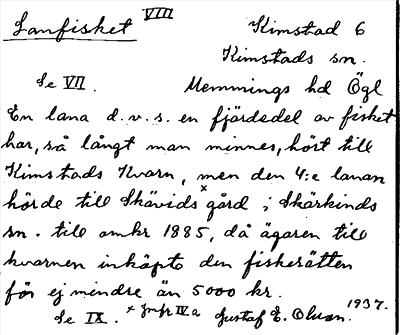 Lanfisket VIII Kimstad 6
Kimstads sn.
Se VII. Memmings hd Ögl
En lana d.v.s. en fjärdedel av fisket
har, så långt man minnes, hört till
Kimstads Kvarn, men den 4:e lanan
hörde till Skävids× gård i Skärkinds
sn. till omkr 1885, då ägaren till
kvarnen inköpte den fiskerätten
för ej mindre än 5000 kr.
Se IX. × Jmfr IV a Gustaf E. Olsson. 1937.